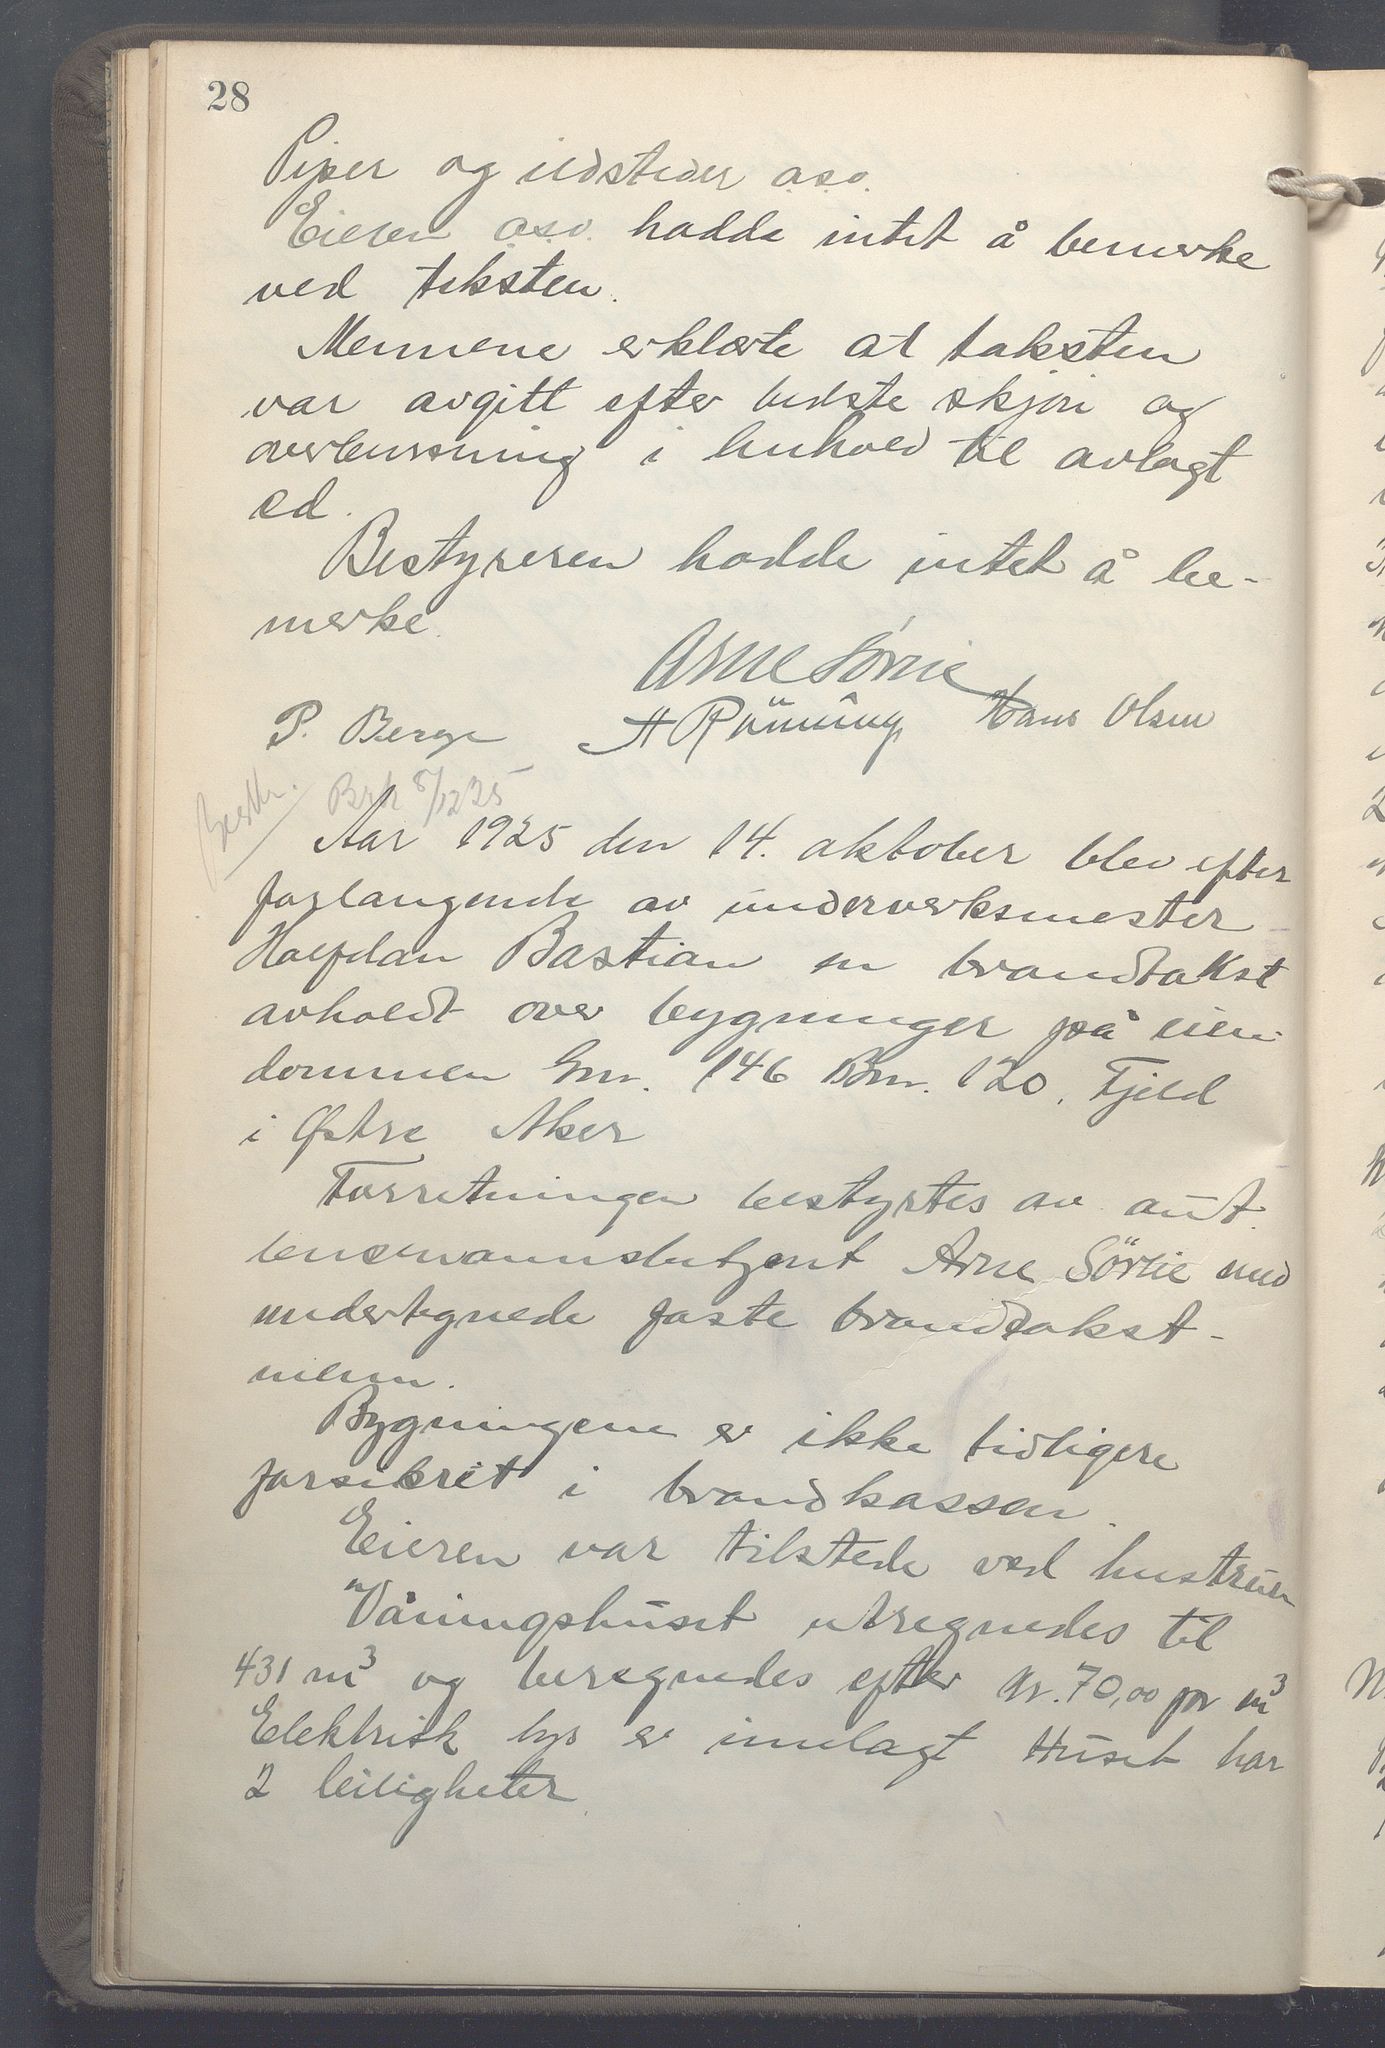 28
Piper og ildsteder o.s.v.
Eieren o.s.v. hadde intet å bemerke
ved taksten.
Mennene erklærte at taksten
var avgitt efter bedste skjøn og
overbevisning i henhold til avlagt
ed.
Bestyreren hadde intet å be-
merke.
Arne Sørlie
P. Berge A Rönning Hans Olsen
Bestkr. Brk 8/12 25
Aar 1925 den 14. oktober blev efter
forlangende av underverksmester
Halfdan Bastian en brandtakst
avholdt over bygninger på eien-
dommen Gnr. 146 Bnr. 120, Fjeld
i Østre Aker
Forretningen bestyrtes av aut.
lensmannsbetjent Arne Sörlie med
undertegnede faste brandtakst-
menn.
Bygningene er ikke tidligere
forsikret i brandkassen.
Eieren var tilstede ved hustruen
Våningshuset utregnedes til
431 m³ og beregnedes efter Kr. 70,00 pr m³
Elektrisk lys er innlagt Huset har
2 leiligheter.